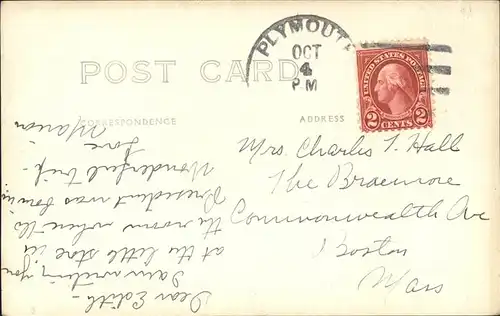 PLYMOUTH
OCT
4
PM
UNITED STATES POSTAGE
2 CENTS 2
POST CARD
CORRESPONDENCE
ADDRESS
Mrs. Charles T. Hall
The Braemore
Commonwealth Ave
Boston
Mass
Dear Edith –
I am writing you
at the little store in
the room where the
President was born in.
Wonderful trip –
Love
Marion